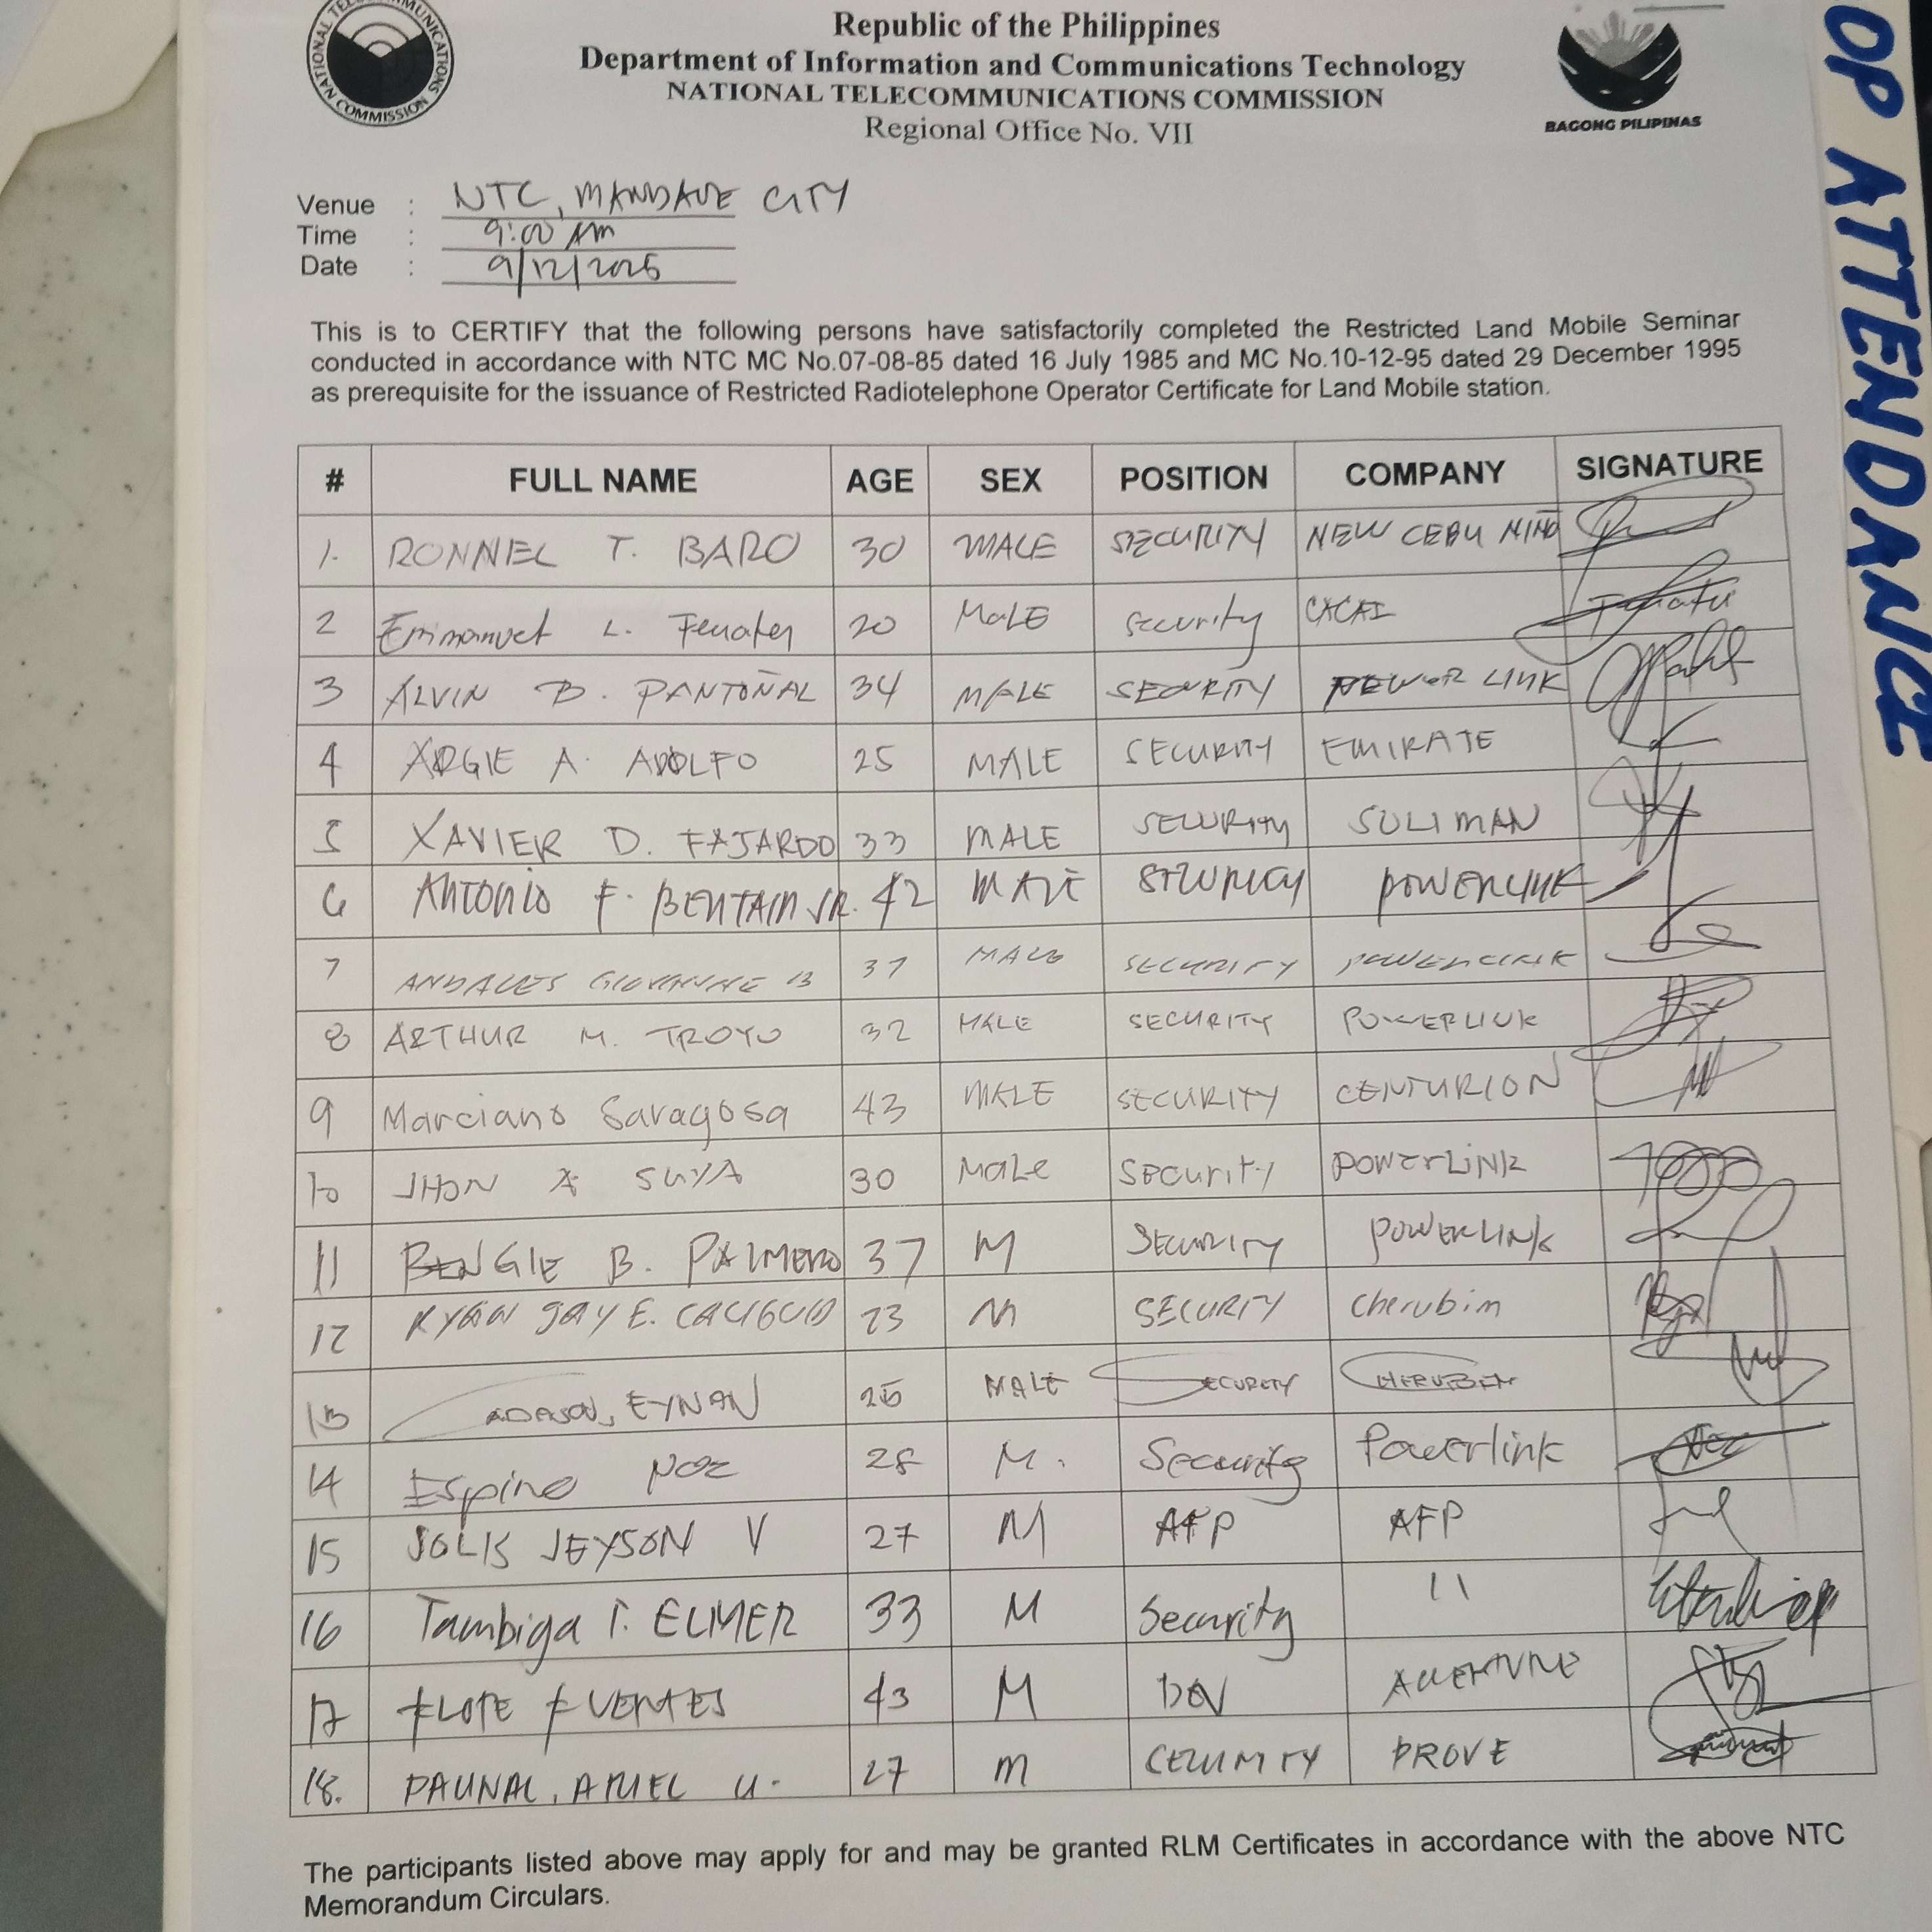 NATIONAL TELECOMMUNICATIONS COMMISSION
Republic of the Philippines
Department of Information and Communications Technology
NATIONAL TELECOMMUNICATIONS COMMISSION
Regional Office No. VII
BAGONG PILIPINAS
OP ATTENDANCE
Venue : NTC, MANDAUE CITY
Time : 9:00 AM
Date : 9/12/2025
This is to CERTIFY that the following persons have satisfactorily completed the Restricted Land Mobile Seminar
conducted in accordance with NTC MC No.07-08-85 dated 16 July 1985 and MC No.10-12-95 dated 29 December 1995
as prerequisite for the issuance of Restricted Radiotelephone Operator Certificate for Land Mobile station.
# FULL NAME AGE SEX POSITION COMPANY SIGNATURE
1. RONNEL T. BARO 30 MALE SECURITY NEW CEBU NIÑO
2 Emmanuel L. 20 MALE Security CACAI
3 ALVIN B. PANTOÑAL 34 MALE SECURITY POWER LINK
4 ARGIE A. ADOLFO 25 MALE SECURITY EMIRATE
5 XAVIER D. FAJARDO 33 MALE SECURITY SULIMAN
6 ANTONIO F. BENTAIN JR. 42 MALE SECURITY POWERLINK
7 ANDALES B 37 MALE SECURITY POWERLINK
8 ARTHUR M. TROYO 32 MALE SECURITY POWERLINK
9 Marciano Saragosa 43 MALE SECURITY CENTURION
10 JHON A SUYA 30 MALE SECURITY POWERLINK
11 BENGIE B. PALMERO 37 M SECURITY POWERLINK
12 RYAN JAY E. 23 M SECURITY Cherubim
13 EYNAN MALE SECURITY CHERUBIM
14 Espino NOE 28 M. Security Powerlink
15 SOLIS JEYSON V 27 M AFP AFP
16 Tambiga T. ELMER 33 M Security 11
17 FLOTE FUENTES 43 M
18. PAUNAL, ARIEL U. 27 M CECURITY PROVE
The participants listed above may apply for and may be granted RLM Certificates in accordance with the above NTC
Memorandum Circulars.